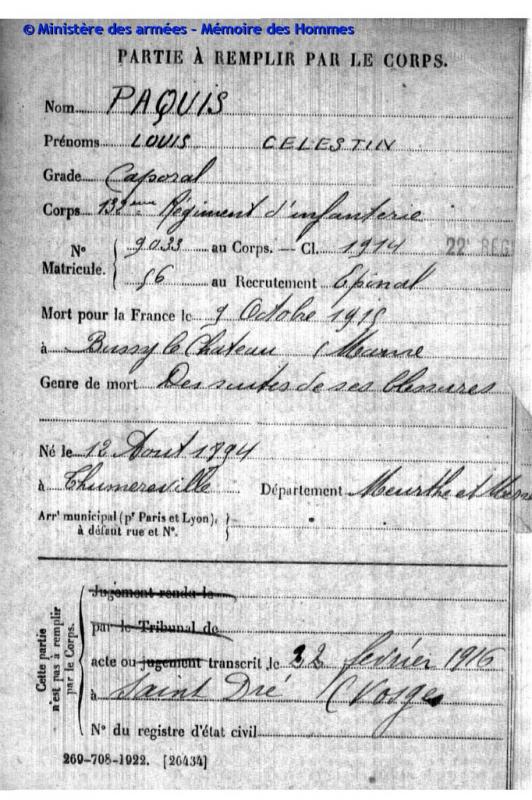 © Ministère des armées - Mémoire des Hommes
PARTIE À REMPLIR PAR LE CORPS.
Nom PAQUIS
Prénoms LOUIS CELESTIN
Grade Caporal
Corps 132ème Régiment d'infanterie
N° Matricule. { 9033 au Corps. — Cl. 1914 22e REG
56 au Recrutement Epinal
Mort pour la France le 7 Octobre 1915
à Bussy le Chateau (Marne
Genre de mort Des suites de ses blessures
Né le 12 Aout 1894
à Thumereville Département Meurthe et M
Arrt municipal (pr Paris et Lyon), à défaut rue et N°. }
Cette partie n'est pas à remplir par le Corps.
Jugement rendu le
par le Tribunal de
acte ou jugement transcrit le 22 février 1916
à Saint Dié (Vosges
N° du registre d'état civil
269-708-1922. [26434]